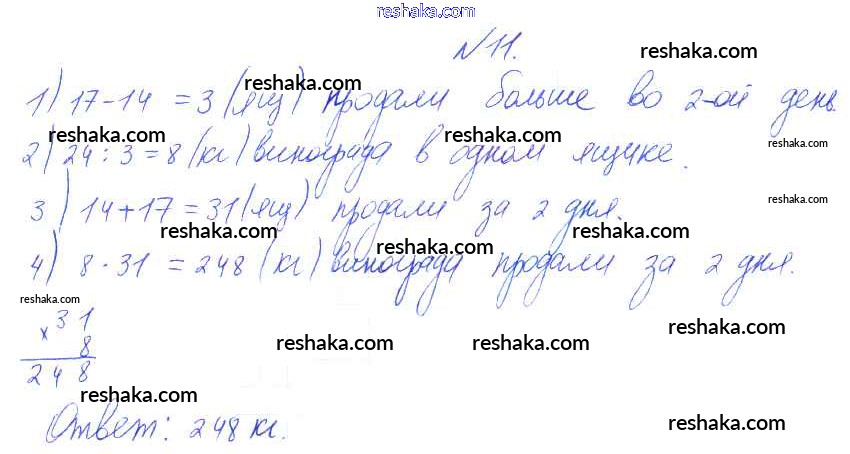 reshaka.com
№11.
reshaka.com
1) 17-14 = 3 (ящ) продали больше во 2-ой день.
reshaka.com
reshaka.com
reshaka.com
reshaka.com
2) 24 : 3 = 8 (кг) винограда в одном ящике.
3) 14+17 = 31 (ящ) продали за 2 дня.
reshaka.com
reshaka.com
reshaka.com
reshaka.com
4) 8 · 31 = 248 (кг) винограда продали за 2 дня.
reshaka.com
× 31
8
248
reshaka.com
reshaka.com
reshaka.com
reshaka.com
Ответ: 248 кг.
reshaka.com